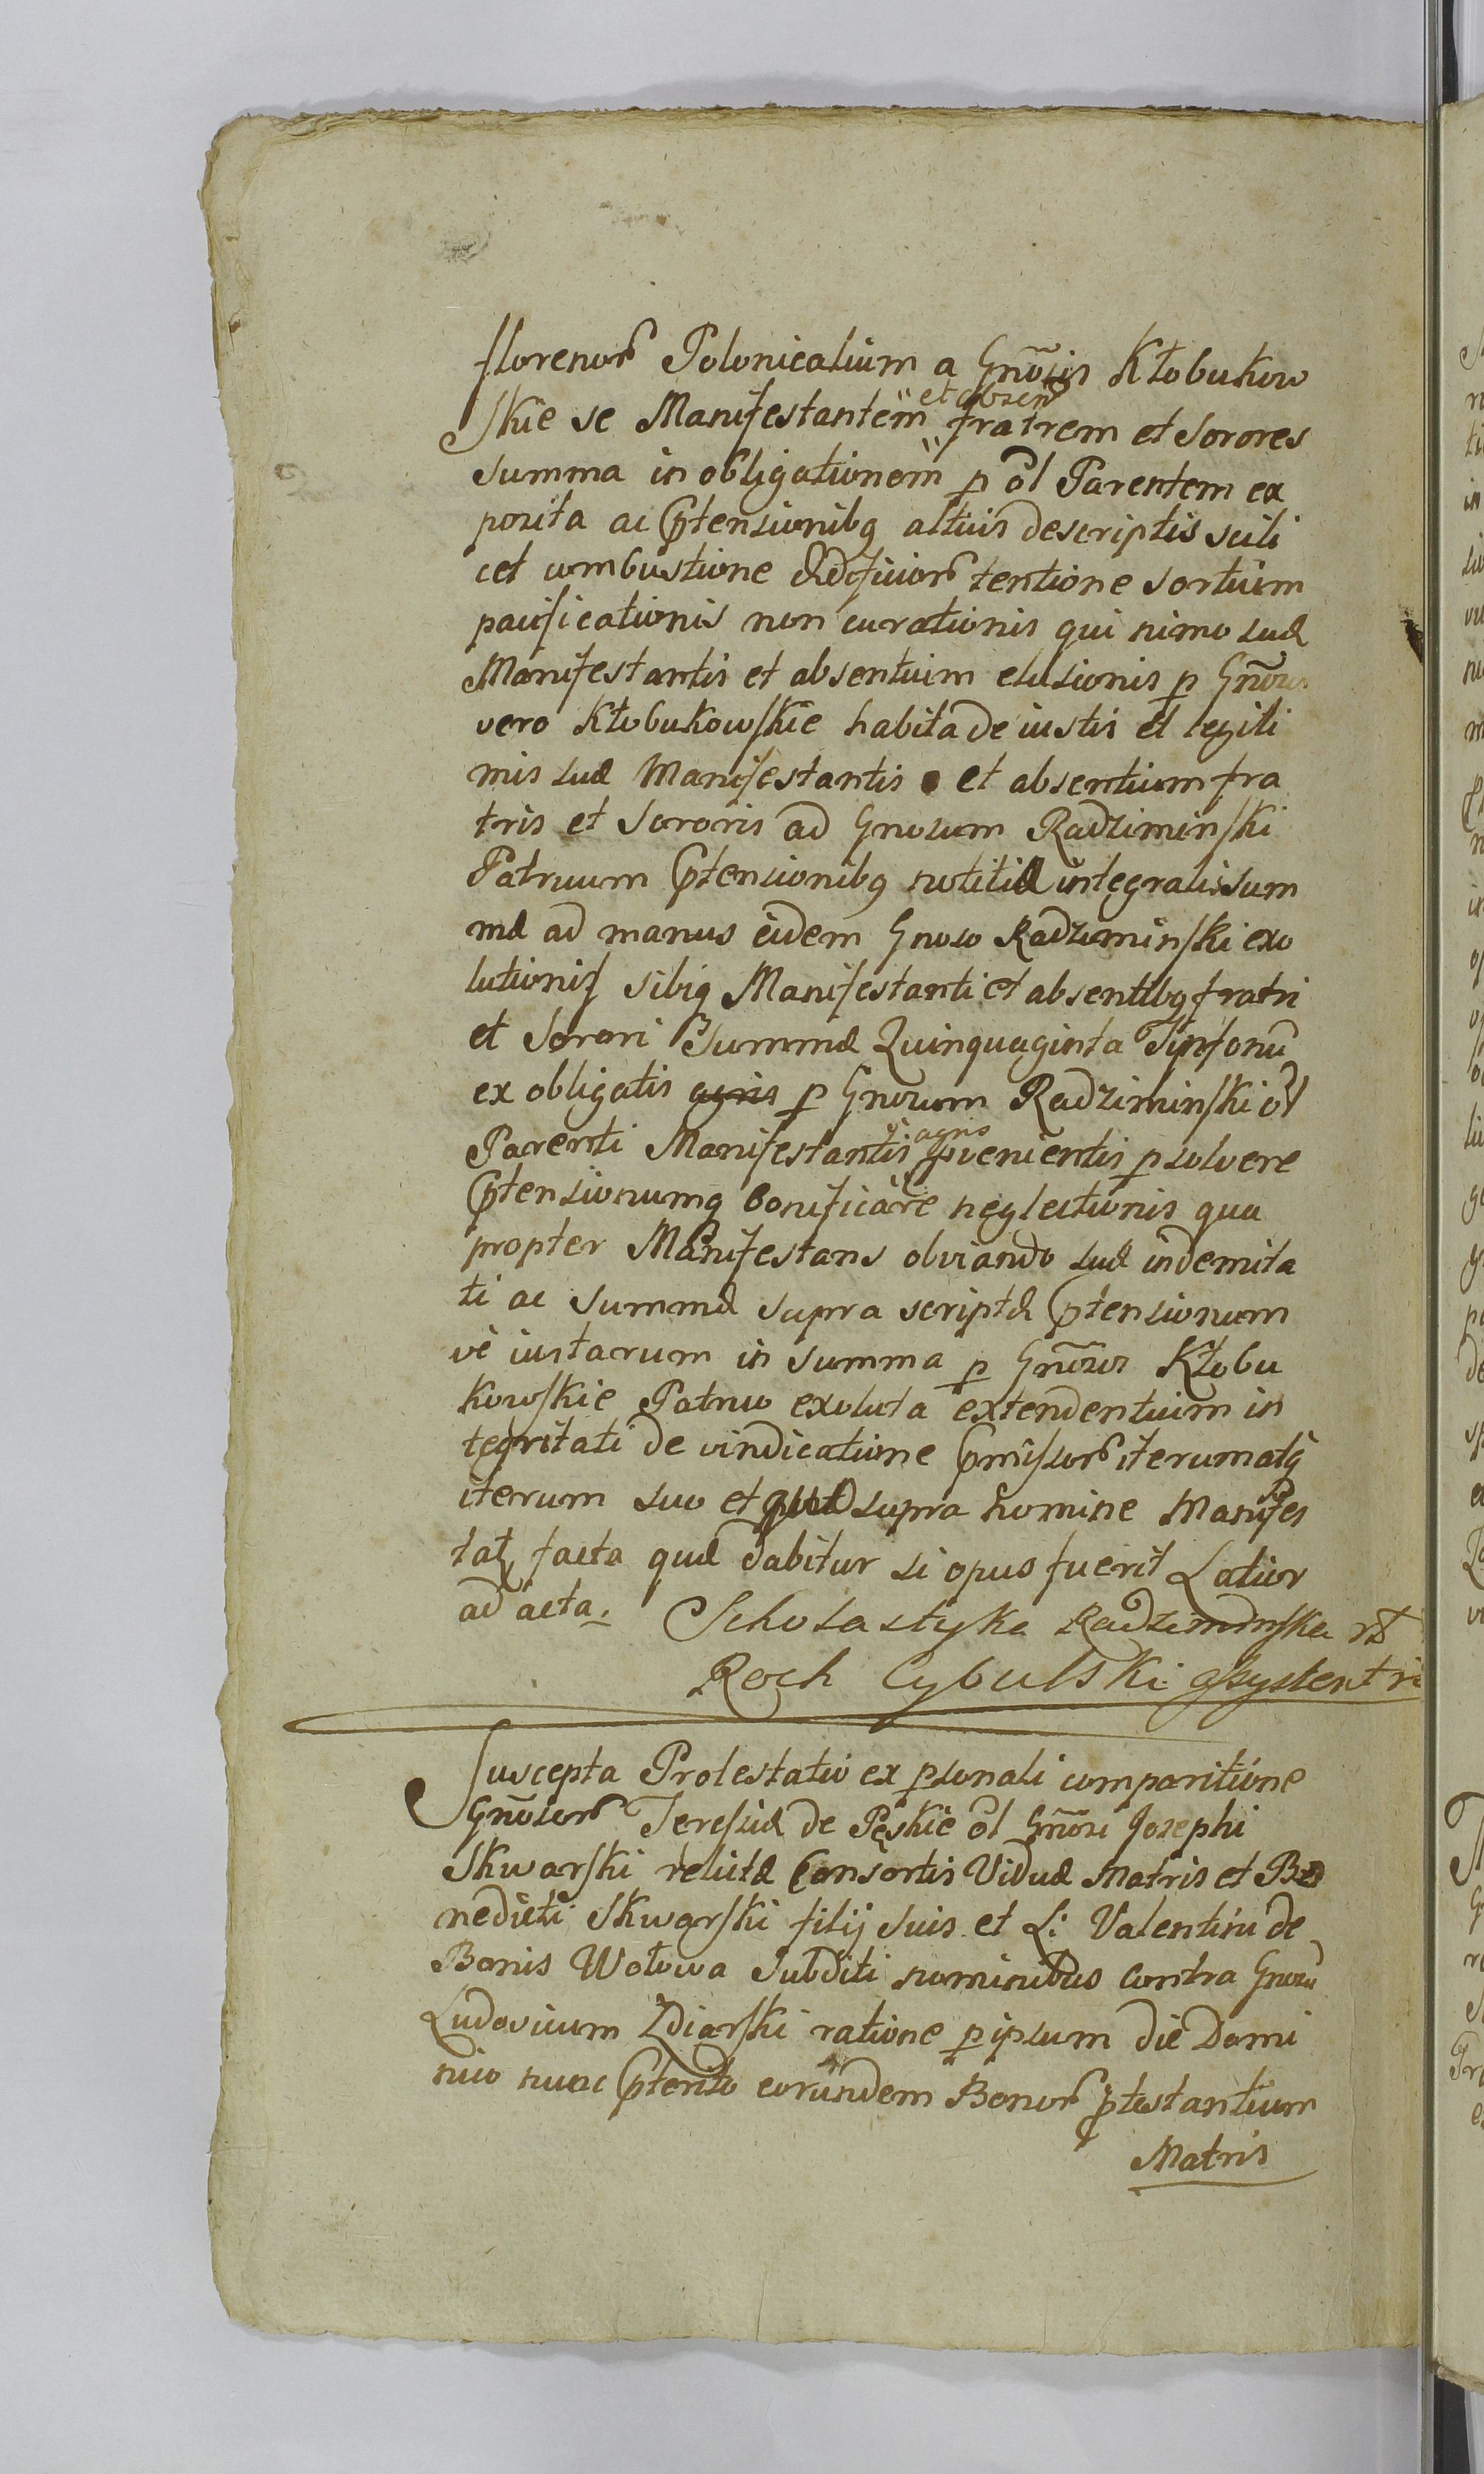 florenor Polonicalium a Gnosis Kłobukow
skie se Manifestantem et absen fratrem et Sorores
summa in obligationem p ol Parentem ex
posita ac Ptensionibq altius descriptis scili
cet combustione Ædificior tentione Sortium
pacificationis non curationis qui nimo suæ
Manifestantis et absentium elusionis p Gnosos
vero Kłobukowskie habita de iustis et legiti
mis suæ Manifestantis et absentium fra
tris et Sororis ad Gnosum Radziminski
Patruum Ptensionibq notitiæ integralis sum
mæ ad manus eidem Gnoso Radziminski exo
lutionis sibiq Manifestanti et absentibq fratri
et Sorori Summæ Quinquaginta Tynfonu
ex obligatis agris p Gnosum Radziminski ol
Parenti Manifestantis agris pvenientis psolvere
Ptensionumq bonificare neglectionis qua
propter Manifestans obviando suæ indemita
ti ac Summæ supra scriptæ Ptensionum
ve iustarum in Summa p Gnosos Kłobu
kowskie Patruo exoluta extendentium in
tegritati de vindicatione Pmissor iterum atq
iterum suo et quo supra nomine Manifes
tat facta quæ dabitur si opus fuerit Latior
ad acta. Scholastyka Radziminska
Roch Cybulski assystent
Suscepta Protestatio ex psonali comparitione
Gnosor Teressiæ de Pęskie ol Gnosi Josephi
Skwarski relictæ Consortis Viduæ Matris et Be
nedicti Skwarski filij suis et L: Valentini de
Bonis Wołowa Subditi nominibus contra Gnosu
Ludovicum Zdiarski ratione p ipsum die Domi
nico nunc Pterito eorundem Bonor ptestantium
Matris